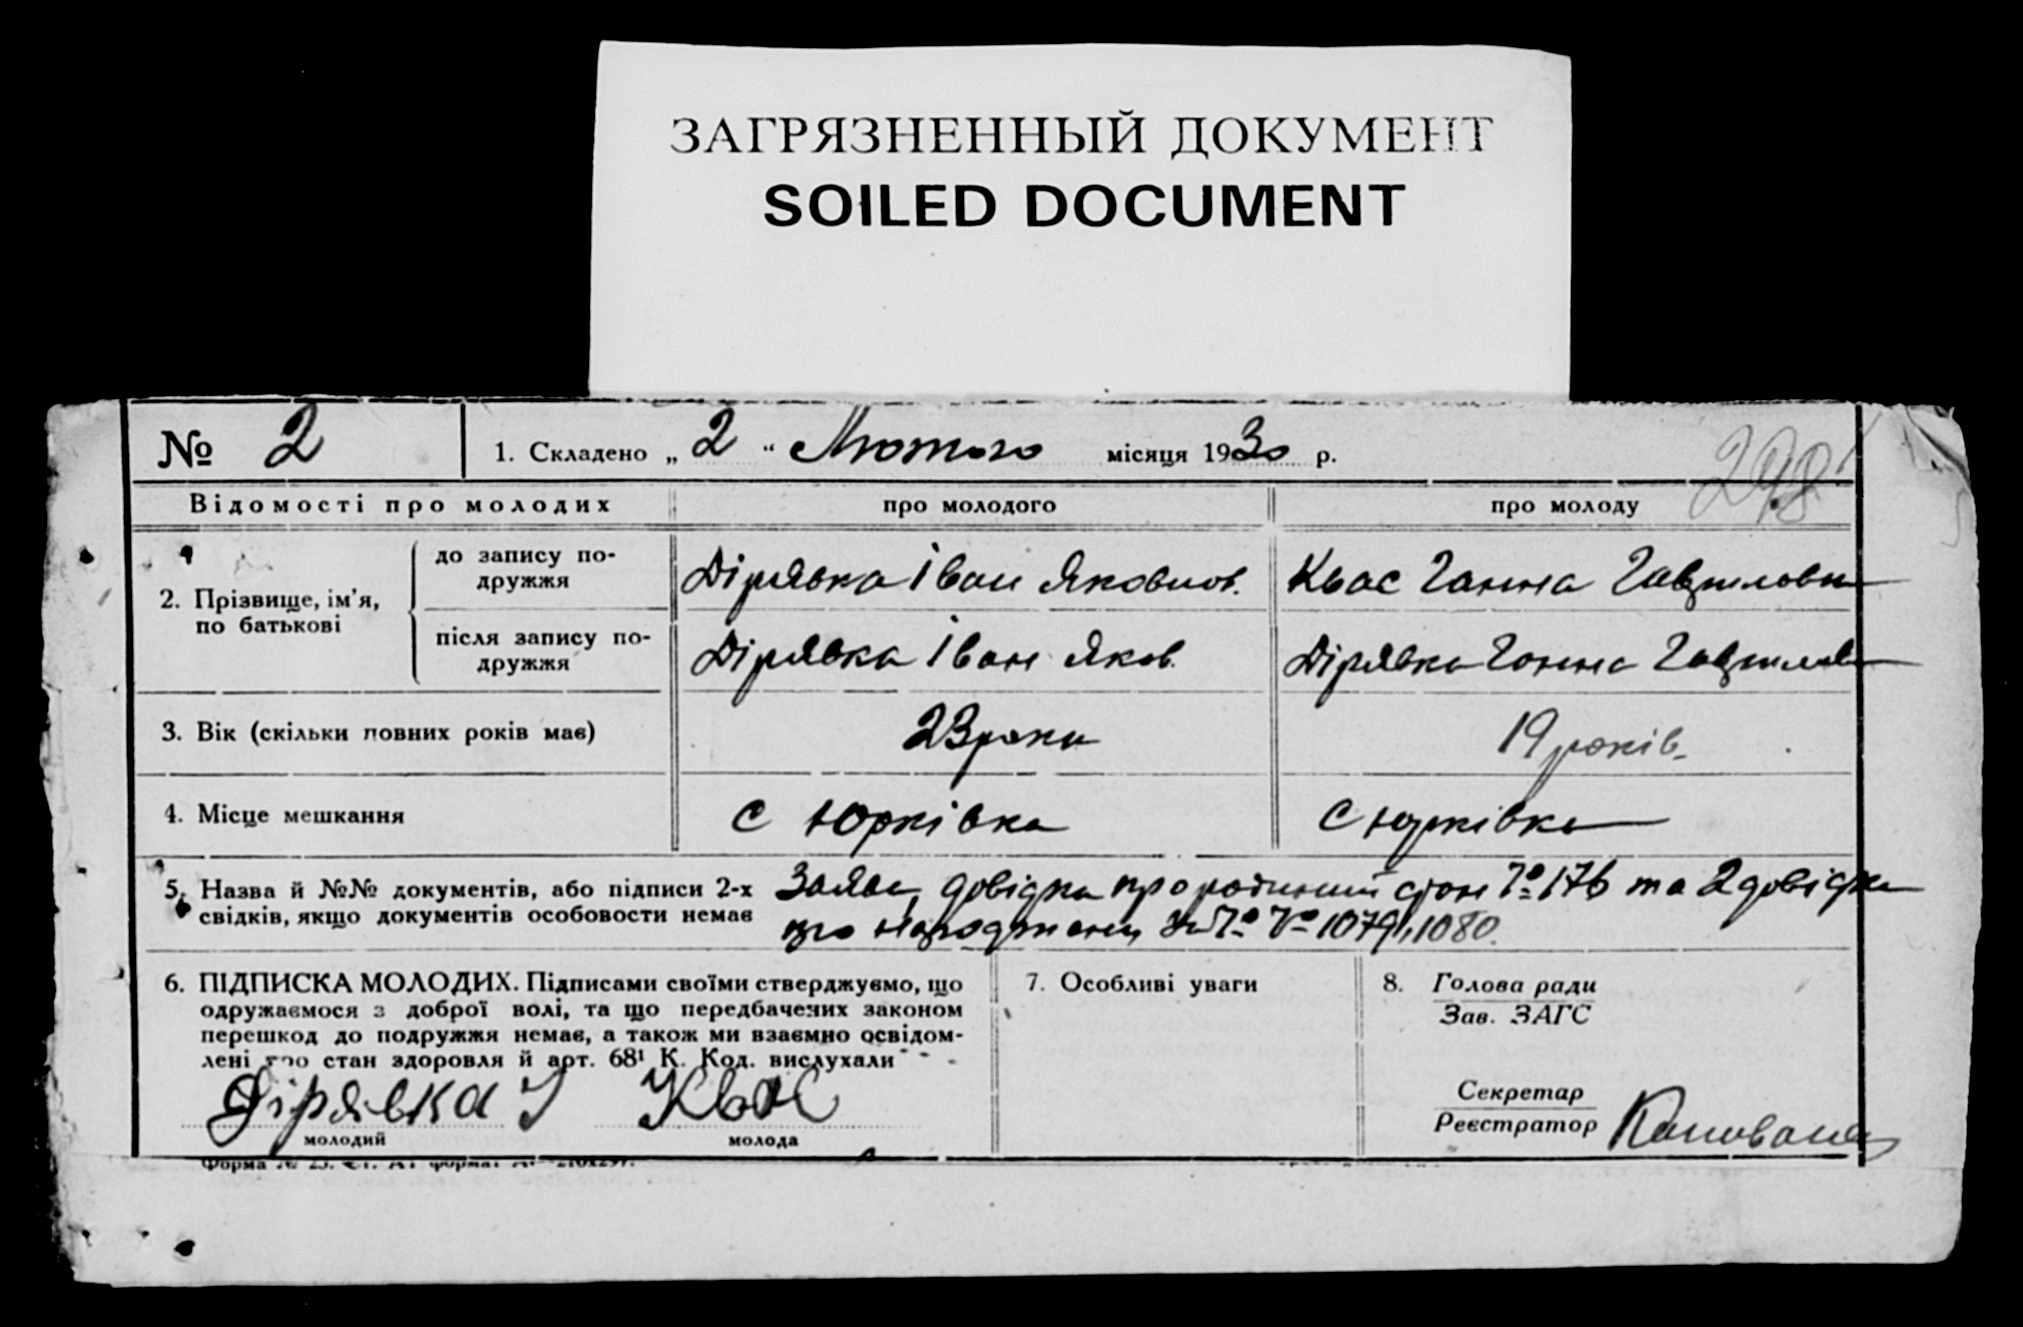 ЗАГРЯЗНЕННЫЙ ДОКУМЕНТ
SOILED DOCUMENT
№ 2
1. Складено „ 2 “ Лютого місяця 1930 р.
298
Відомості про молодих
про молодого
про молоду
2. Прізвище, ім'я, по батькові
до запису подружжя
Дірявка Іван Яковлов.
Квас Ганна Гавриловн
після запису подружжя
Дірявка Іван Яков.
Дірявка Ганна Гаврилов
3. Вік (скільки повних років має)
23 роки
19 років
4. Місце мешкання
С Юрківка
С Юрківка
5. Назва й №№ документів, або підписи 2-х
свідків, якщо документів особовости немає
Заява, довідка про родинний стан № 176 та 2 довідки
про народження за № № 1079, 1080.
6. ПІДПИСКА МОЛОДИХ. Підписами своїми стверджуємо, що
одружаємося з доброї волі, та що передбачених законом
перешкод до подружжя немає, а також ми взаємно освідом-
лені про стан здоровля й арт. 68¹ К. Код. вислухали
Дірявка І
молодий
Квас
молода
7. Особливі уваги
8. Голова ради
Зав. ЗАГС
Секретар
Реєстратор
Форма № 23.